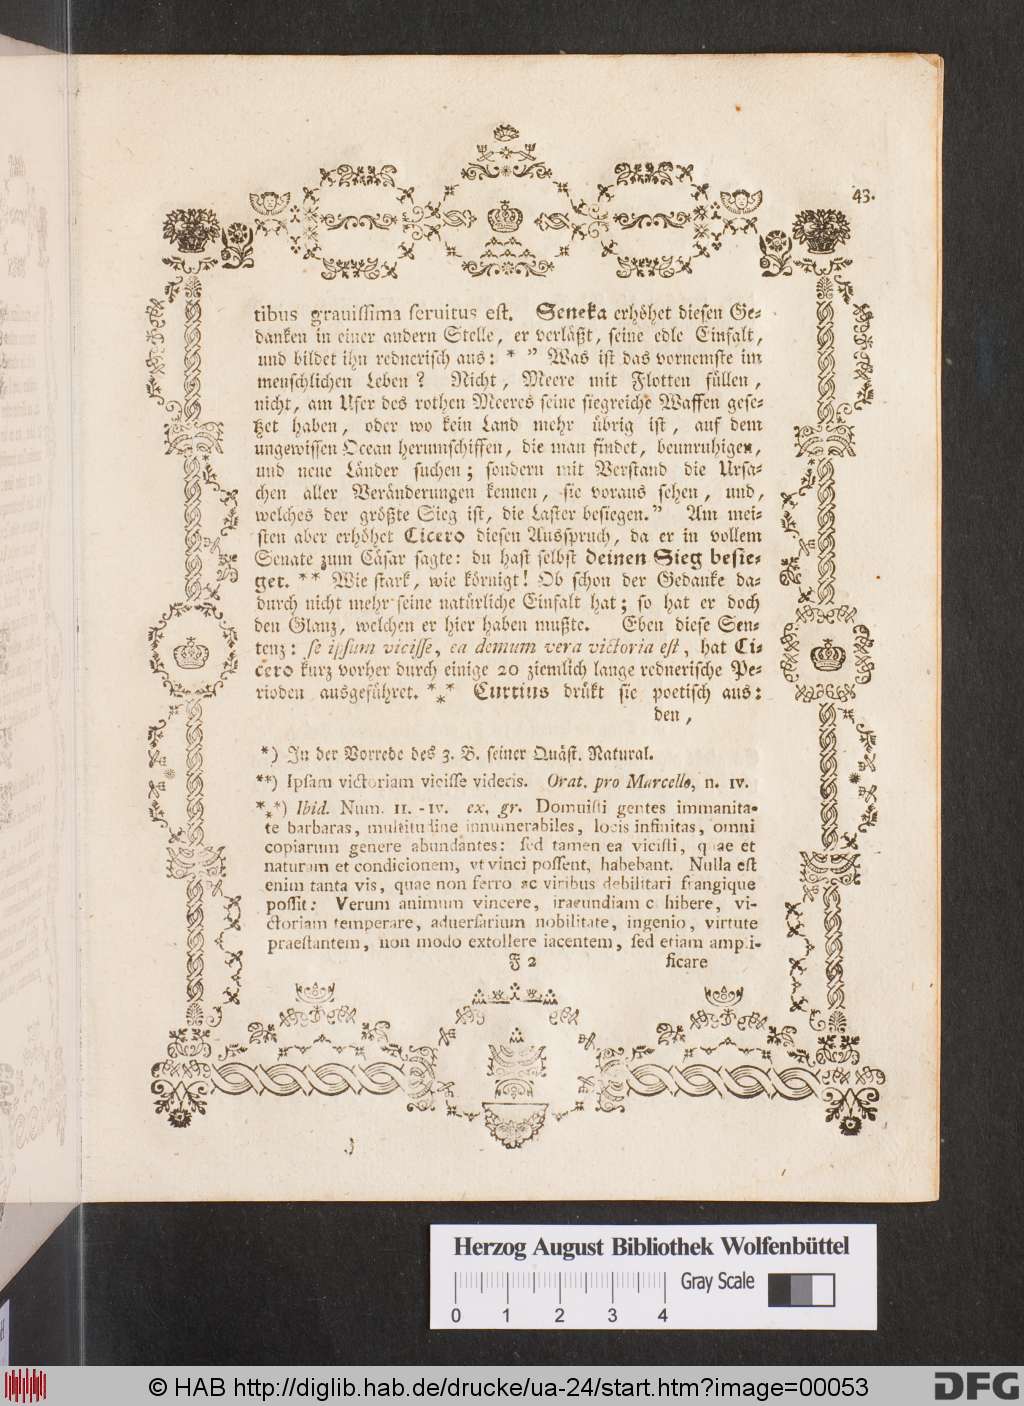 43.
tibus grauissima seruitus est. Seneka erhöhet diesen Ge-
danken in einer andern Stelle, er verläßt, seine edle Einfalt,
und bildet ihn rednerisch aus: * ” Was ist das vornemste im
menschlichen Leben? Nicht, Meere mit Flotten füllen,
nicht, am Ufer des rothen Meeres seine siegreiche Waffen gese-
tzet haben, oder wo kein Land mehr übrig ist, auf dem
ungewissen Ocean herumschiffen, die man findet, beunruhigen,
und neue Länder suchen; sondern mit Verstand die Ursa-
chen aller Veränderungen kennen, sie voraus sehen, und,
welches der größte Sieg ist, die Laster besiegen.” Am mei-
sten aber erhöhet Cicero diesen Ausspruch, da er in vollem
Senate zum Cäsar sagte: du hast selbst deinen Sieg besie-
get. ** Wie stark, wie körnigt! Ob schon der Gedanke da-
durch nicht mehr seine natürliche Einfalt hat; so hat er doch
den Glanz, welchen er hier haben mußte. Eben diese Sen-
tenz: se ipsum vicisse, ea demum vera victoria est, hat Ci-
cero kurz vorher durch einige 20 ziemlich lange rednerische Pe-
rioden ausgeführet. *** Curtius drükt sie poetisch aus:
den,
*) In der Vorrede des 3. B. seiner Quäst. Natural.
**) Ipsam victoriam vicisse videris. Orat. pro Marcello, n. IV.
***) Ibid. Num. II. - IV. ex. gr. Domuisti gentes immanita-
te barbaras, multitudine innumerabiles, locis infinitas, omni
copiarum genere abundantes: sed tamen ea vicisti, quae et
naturam et condicionem, vt vinci possent, habebant. Nulla est
enim tanta vis, quae non ferro ac viribus debilitari frangique
possit: Verum animum vincere, iracundiam cohibere, vi-
ctoriam temperare, aduersarium nobilitate, ingenio, virtute
praestantem, non modo extollere iacentem, sed etiam ampli-
F 2 ficare
Herzog August Bibliothek Wolfenbüttel
Gray Scale
0 1 2 3 4
© HAB http://diglib.hab.de/drucke/ua-24/start.htm?image=00053
DFG